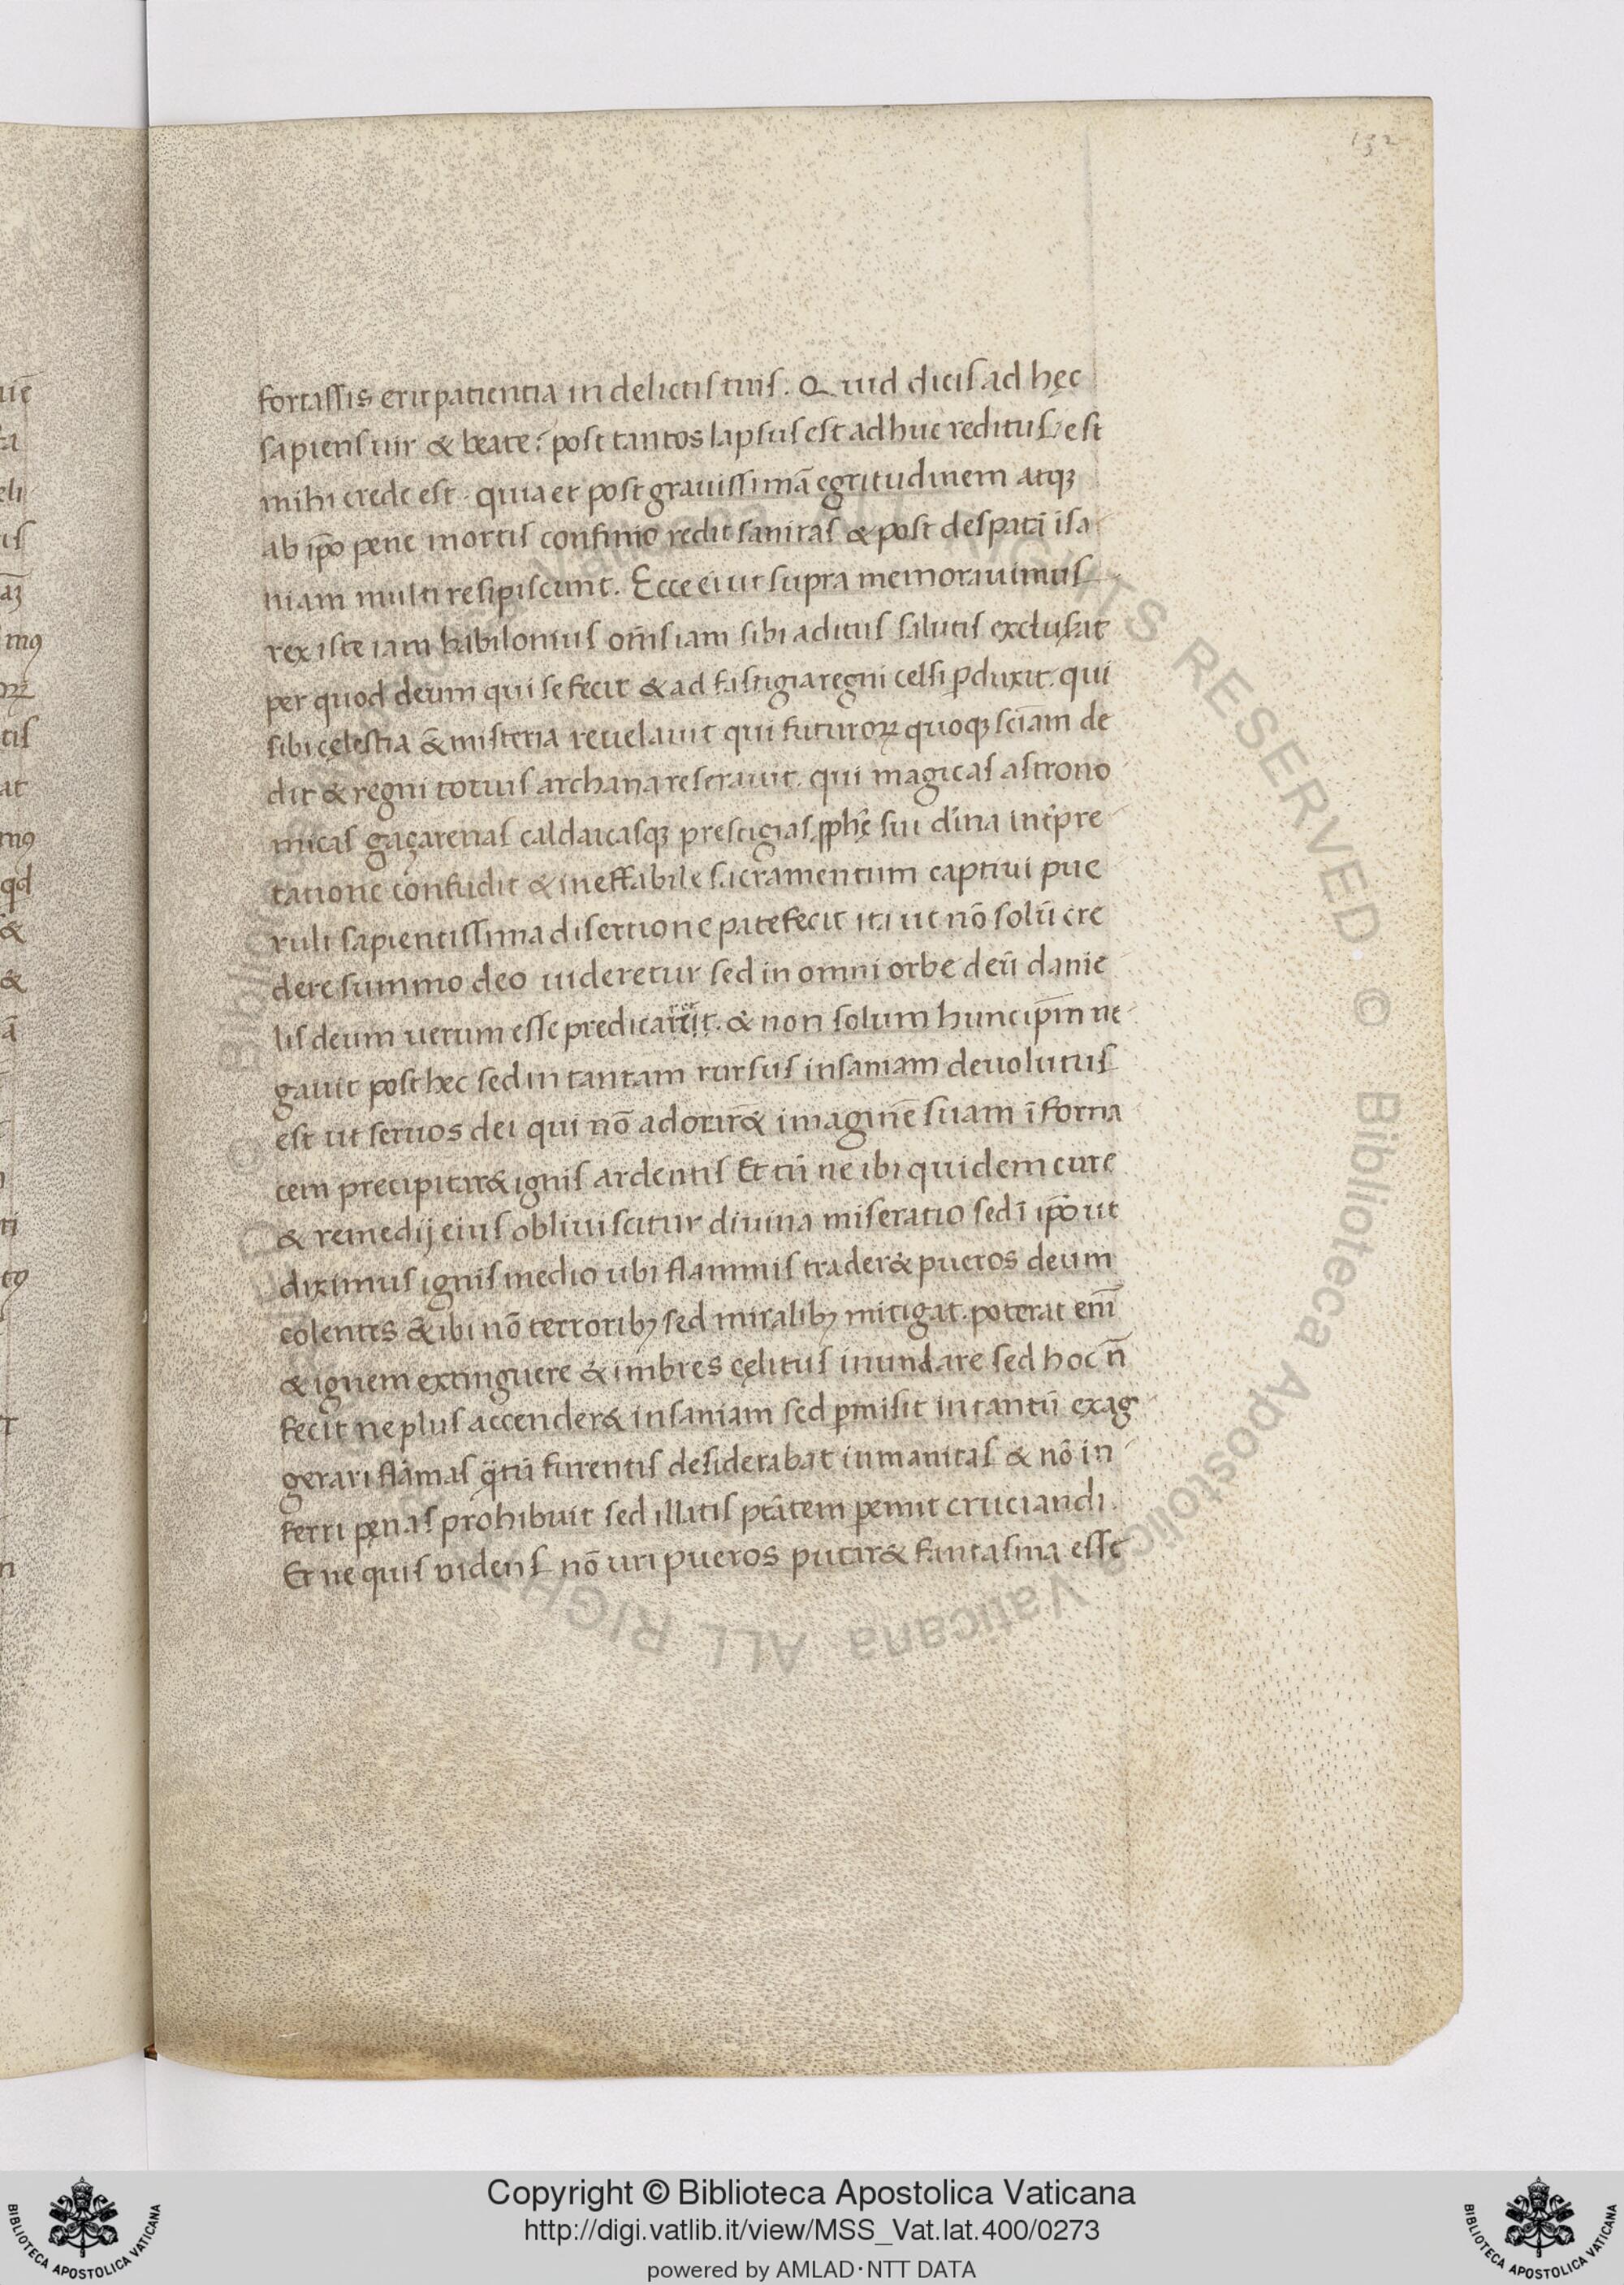 132
fortassis erit patientia in delictis tuis. Quid dicis ad hęc
sapiens uir & beate? post tantos lapsus est adhuc reditus? est
mihi crede est. quia et post grauissimā egritudinem atqꝫ
ab ip̄o pene mortis confinio redit sanitas & post despatā īsa
niam multi resipiscunt. Ecce ei ut supra memorauimus
rex iste iam babilonius om̄s iam sibi aditus salutis exclusat
per quod deum qui se fecit & ad fastigia regni celsi ꝑduxit. qui
sibi cęlestia & misteria reuelauit qui futuroꝝ quoqꝫ sciām de
dit & regni totius archana reserauit. qui magicas astrono
micas gaçarenas caldaicasqꝫ prestigias, ꝓphę̄ sui di'na int̄pre
tatione confudit & ineffabile sacramentum captiui pue
ruli sapientissima disertione patefecit ita ut nō solū cre
dere summo deo uideretur sed in omni orbe deū danie
lis deum uerum esse predicarit. & non solum hunc ip̄m ne
gauit post hec sed in tantam rursus insaniam deuolutus
est ut seruos dei qui nō adorar̄& imaginē suam ī forna
cem precipitar& ignis ardentis Et tū ne ibi quidem cure
& remedij eius obliuiscitur diuina miseratio sed ī ip̄o ut
diximus ignis medio ubi flammis trader& pueros deum
colentes & ibi nō terroribꝫ sed miralibꝫ mitigat. poterat enī
& ignem extinguere & imbres cęlitus inundare sed hoc n̄
fecit ne plus accender& insaniam sed ꝑmisit in tantū exag
gerari flāmas q̄tū furentis desiderabat inmanitas & nō in
ferri pęnas prohibuit sed illatis ptātem ꝑemit cruciandi.
Et ne quis uidens nō uri pueros putar& fantasma esse
Copyright © Biblioteca Apostolica Vaticana
http://digi.vatlib.it/view/MSS_Vat.lat.400/0273
powered by AMLAD·NTT DATA
BIBLIOTECA APOSTOLICA VATICANA
BIBLIOTECA APOSTOLICA VATICANA